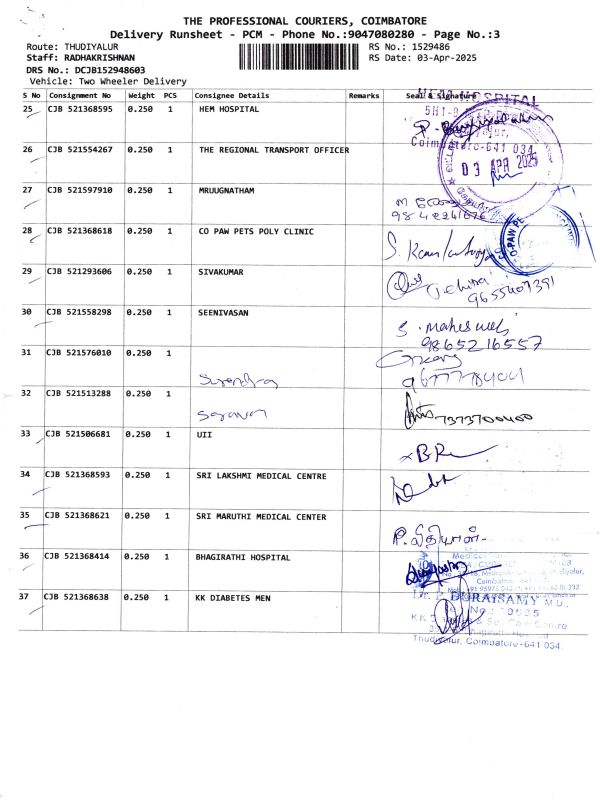 THE PROFESSIONAL COURIERS, COIMBATORE
Delivery Runsheet - PCM - Phone No.:9047080280 - Page No.:3
Route: THUDIYALUR RS No.: 1529486
Staff: RADHAKRISHNAN RS Date: 03-Apr-2025
DRS No.: DCJB152948603
Vehicle: Two Wheeler Delivery
S No Consignment No Weight PCS Consignee Details Remarks Seal & Signature
25 CJB 521368595 0.250 1 HEM HOSPITAL
HOSPITAL
Coimbatore-641 034.
26 CJB 521554267 0.250 1 THE REGIONAL TRANSPORT OFFICER
03 APR 2025
27 CJB 521597910 0.250 1 MRUUGNATHAM
28 CJB 521368618 0.250 1 CO PAW PETS POLY CLINIC
29 CJB 521293606 0.250 1 SIVAKUMAR
9655407391
30 CJB 521558298 0.250 1 SEENIVASAN
9865216557
31 CJB 521576010 0.250 1
Surendra
32 CJB 521513288 0.250 1
Saravan 7373700400
33 CJB 521506681 0.250 1 UII
34 CJB 521368593 0.250 1 SRI LAKSHMI MEDICAL CENTRE
35 CJB 521368621 0.250 1 SRI MARUTHI MEDICAL CENTER
36 CJB 521368414 0.250 1 BHAGIRATHI HOSPITAL
37 CJB 521368638 0.250 1 KK DIABETES MEN
DORAISAMY M.D.,
Thudiyalur, Coimbatore-641 034.